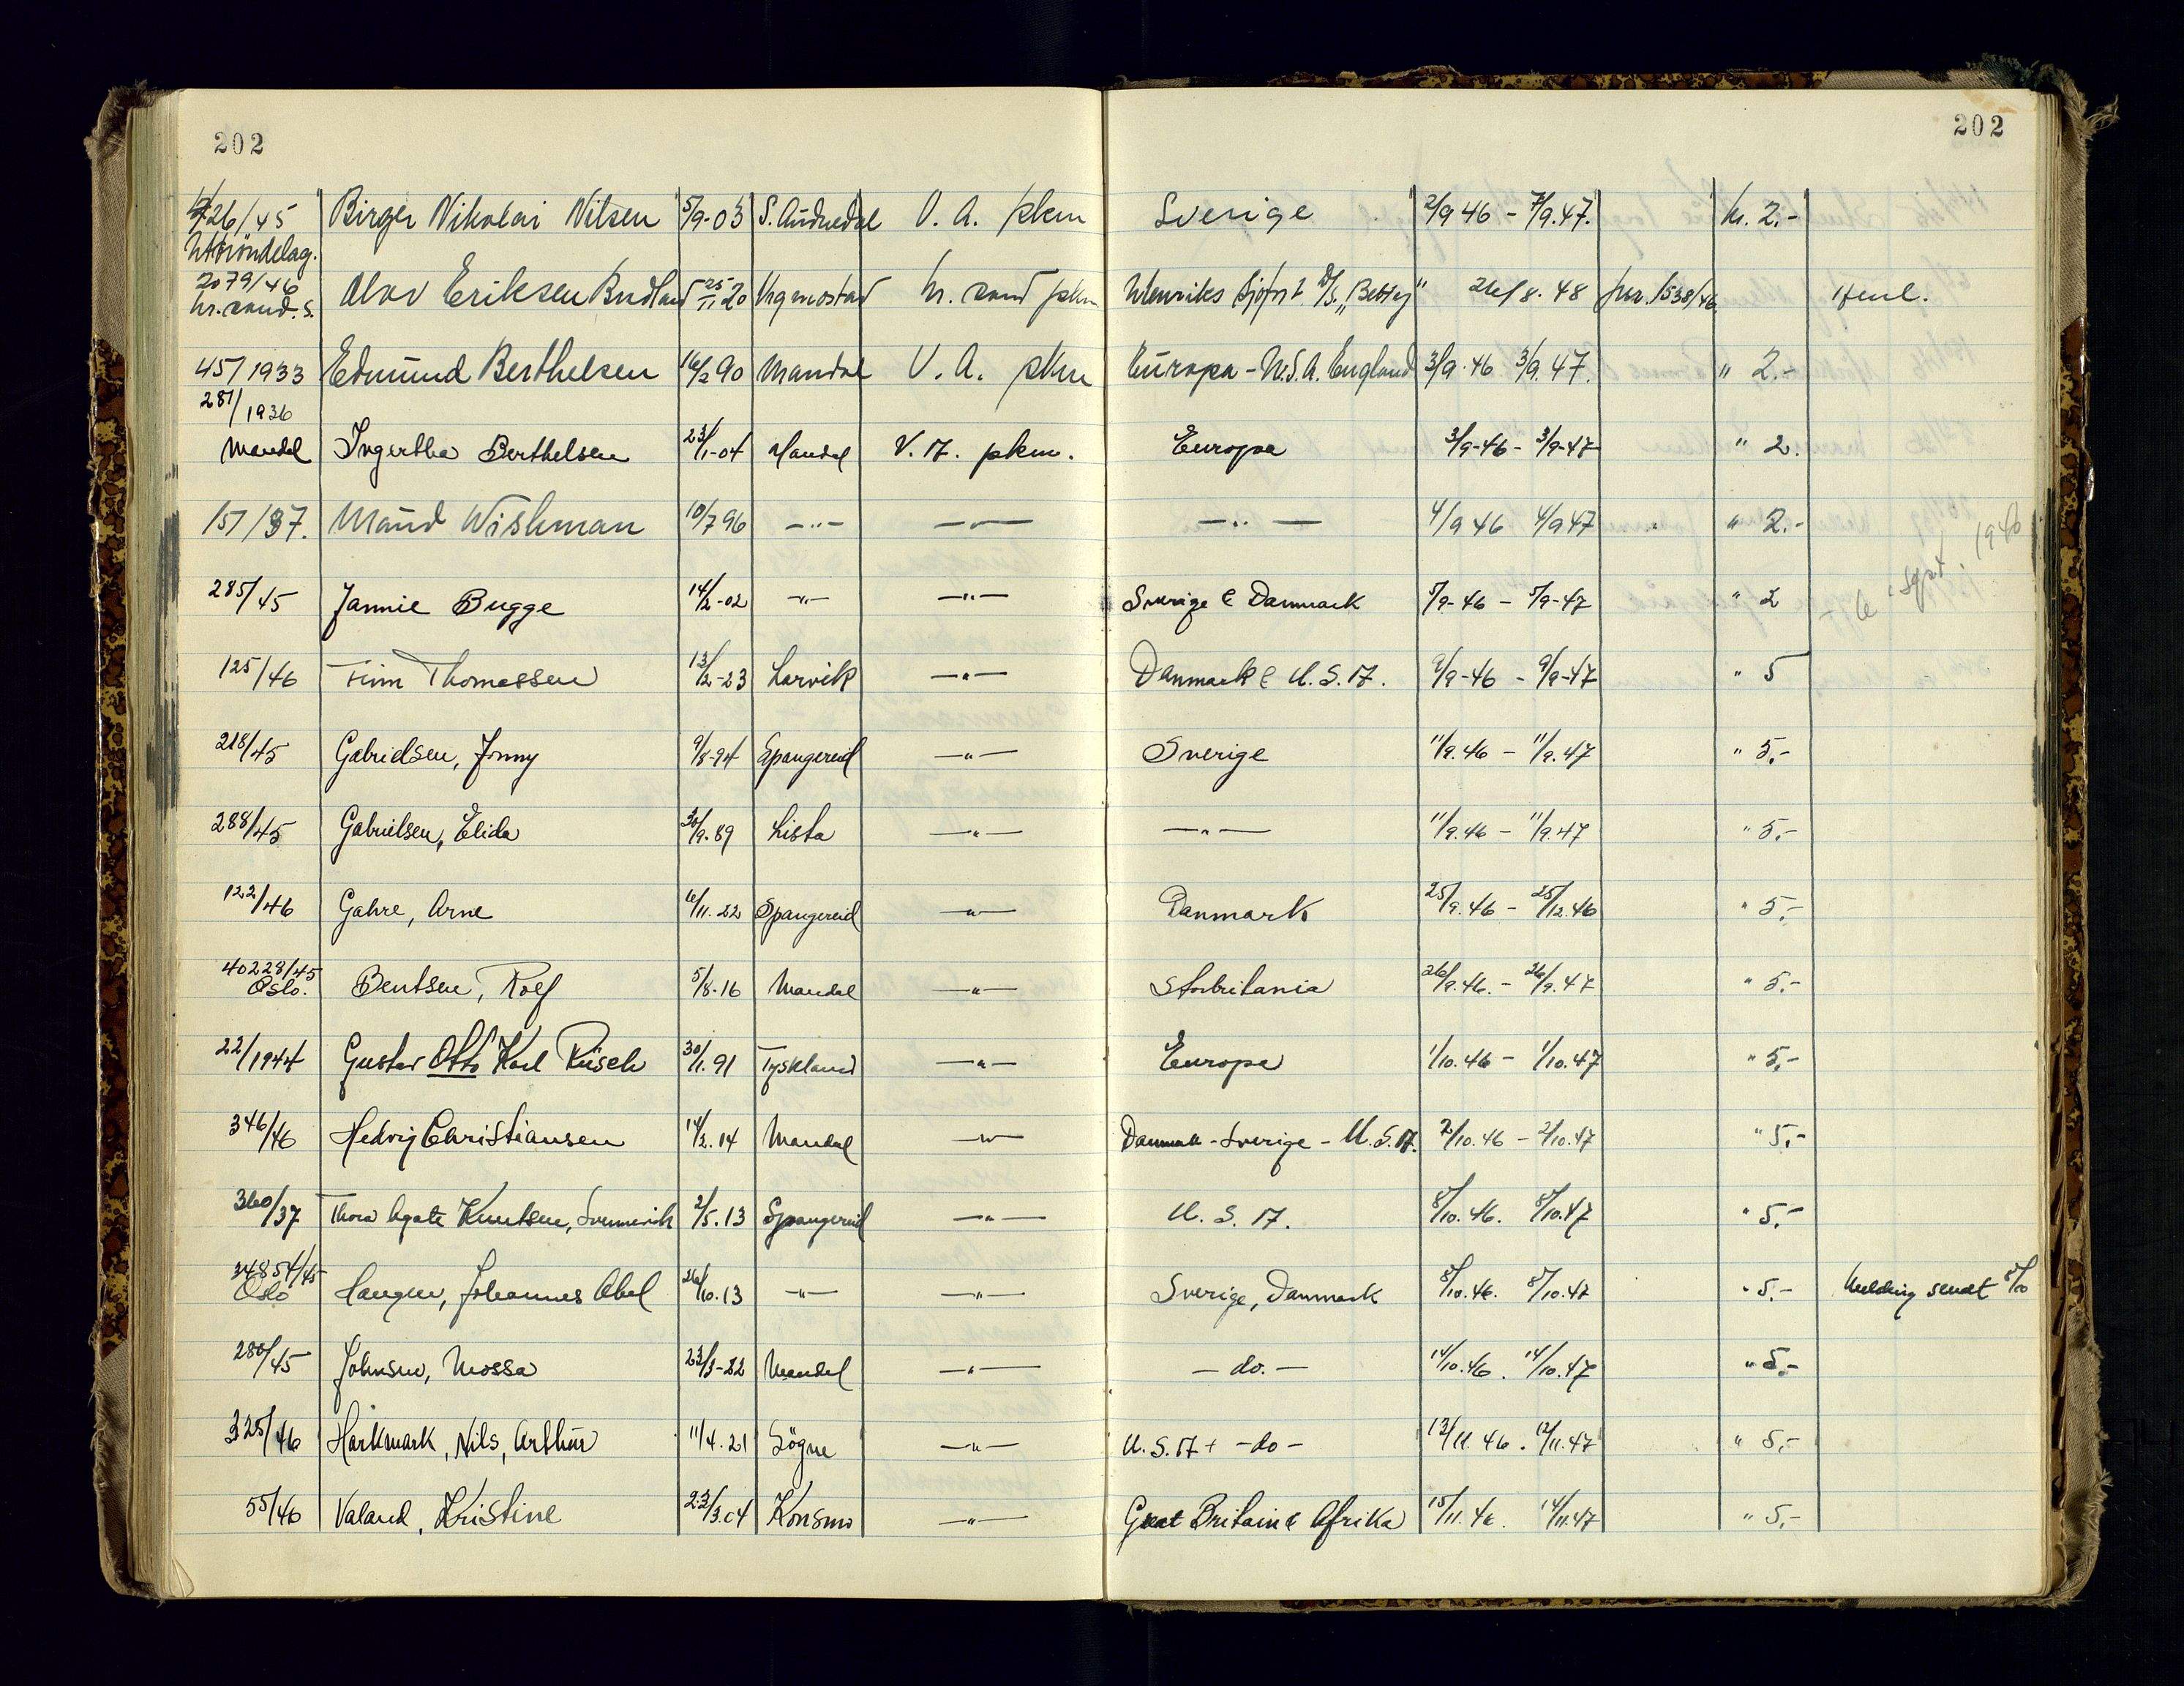 202 202
26/45 Birger Nikolai Nilsen 5/9-03 S. Audnedal V. A. pkm Sverige 2/9 46 - 7/9.47. kr. 2.-
2079/46
kr.sand.S. Eriksen 20 kr. sand pkm. 26/8. 48 1538/46
45/1933 Edmund Berthelsen 16/2 90 Mandal V. A. pkm Europa - U.S.A. England 3/9.46 3/9.47. " 2.-
281/1936
Mandal Ingertha Berthelsen 23/1-04 Mandal V. A. pkm. Europa 3/9-46 - 3/9-47 " 2.
151/37. Maud Wishman 10/7 96 -"- -"- -"- 4/9 46 4/9 47 " 2.-
6 sept. 1946
285/45 Jannie Bugge 14/2-02 -"- -"- Sverige & Danmark 5/9-46 - 5/9-47 " 2
125/46 Finn Thomassen 13/2-23 Larvik -"- Danmark & U.S.A. 9/9-46 - 9/9-47 " 5
218/45 Gabrielsen, Jonny 9/8-94 Spangereid -"- Sverige 11/9.46 - 11/9.47 " 5.-
288/45 Gabrielsen, Elida 30/9.89 Lista -"- -"- 11/9.46 - 11/9.47 " 5.-
122/46 Gahre, Arne 6/11.22 Spangereid -"- Danmark 25/9.46 - 25/12.46 " 5.-
40228/45
Oslo. Bentsen, Rolf 5/8.16 Mandal -"- Storbritania 26/9.46. - 26/9.47 " 5.-
22/1944 Gustav Otto Karl Rüsch 30/1.91 Tyskland -"- Europa 1/10.46 - 1/10.47 " 5.-
346/46 Hedvig Christiansen 14/2.14 Mandal -"- Danmark - Sverige - U.S.A. 2/10.46 - 2/10.47 " 5.-
360/37 Thora Agate Knutsen, 2/5.13 Spangereid -"- U.S.A. 8/10.46. 8/10.47 " 5.-
34854/45
Oslo Haugen, Johannes Abel 26/10.13 -"- -"- Sverige, Danmark 8/10.46. 8/10.47 " 5.- Melding sendt 8/10
280/45 Johnsen, Mossa 23/3-22 Mandal -"- - do. - 14/10.46. 14/10.47 " 5.-
325/46 Harkmark, Nils, Arthur 11/4.21 Sögne -"- U.S.A + - do - 12/11.46. 12/11.47 " 5.-
55/46 Valand, Kristine 23/3.04 Konsmo -"- Great Britain & Afrika 15/11.46. 14/11.47 " 5.-